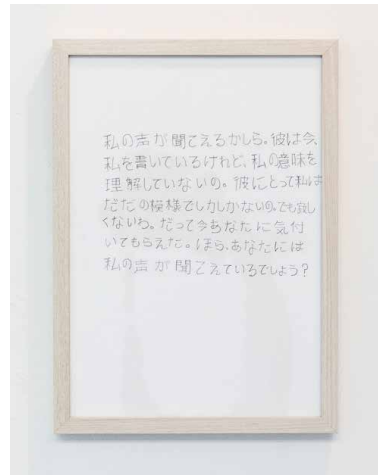 私の声が聞こえるかしら。彼は今、
私を書いているけれど、私の意味を
理解していないの。彼にとって私は
ただの模様でしかしかないの。でも寂し
くないわ。だって今あなたに気付
いてもらえた。ほら、あなたには
私の声が聞こえているでしょう?